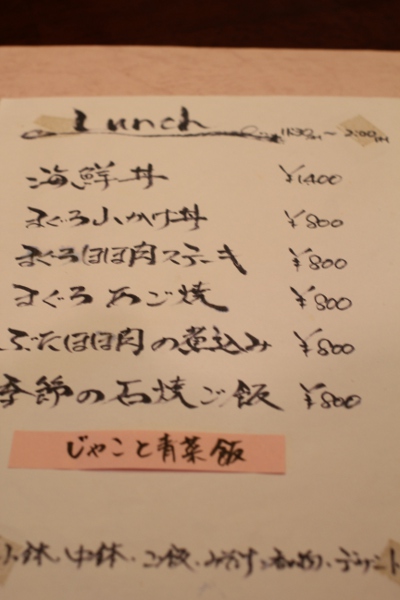 Lunch 11:30AM~2:00PM
海鮮丼 ¥1400
まぐろ山かけ丼 ¥800
まぐろほほ肉ステーキ ¥800
まぐろあご焼 ¥800
ぶたほほ肉の煮込み ¥800
季節の石焼ご飯 ¥800
じゃこと青菜飯
小鉢・中鉢・ご飯・みそ汁・香の物・デザート